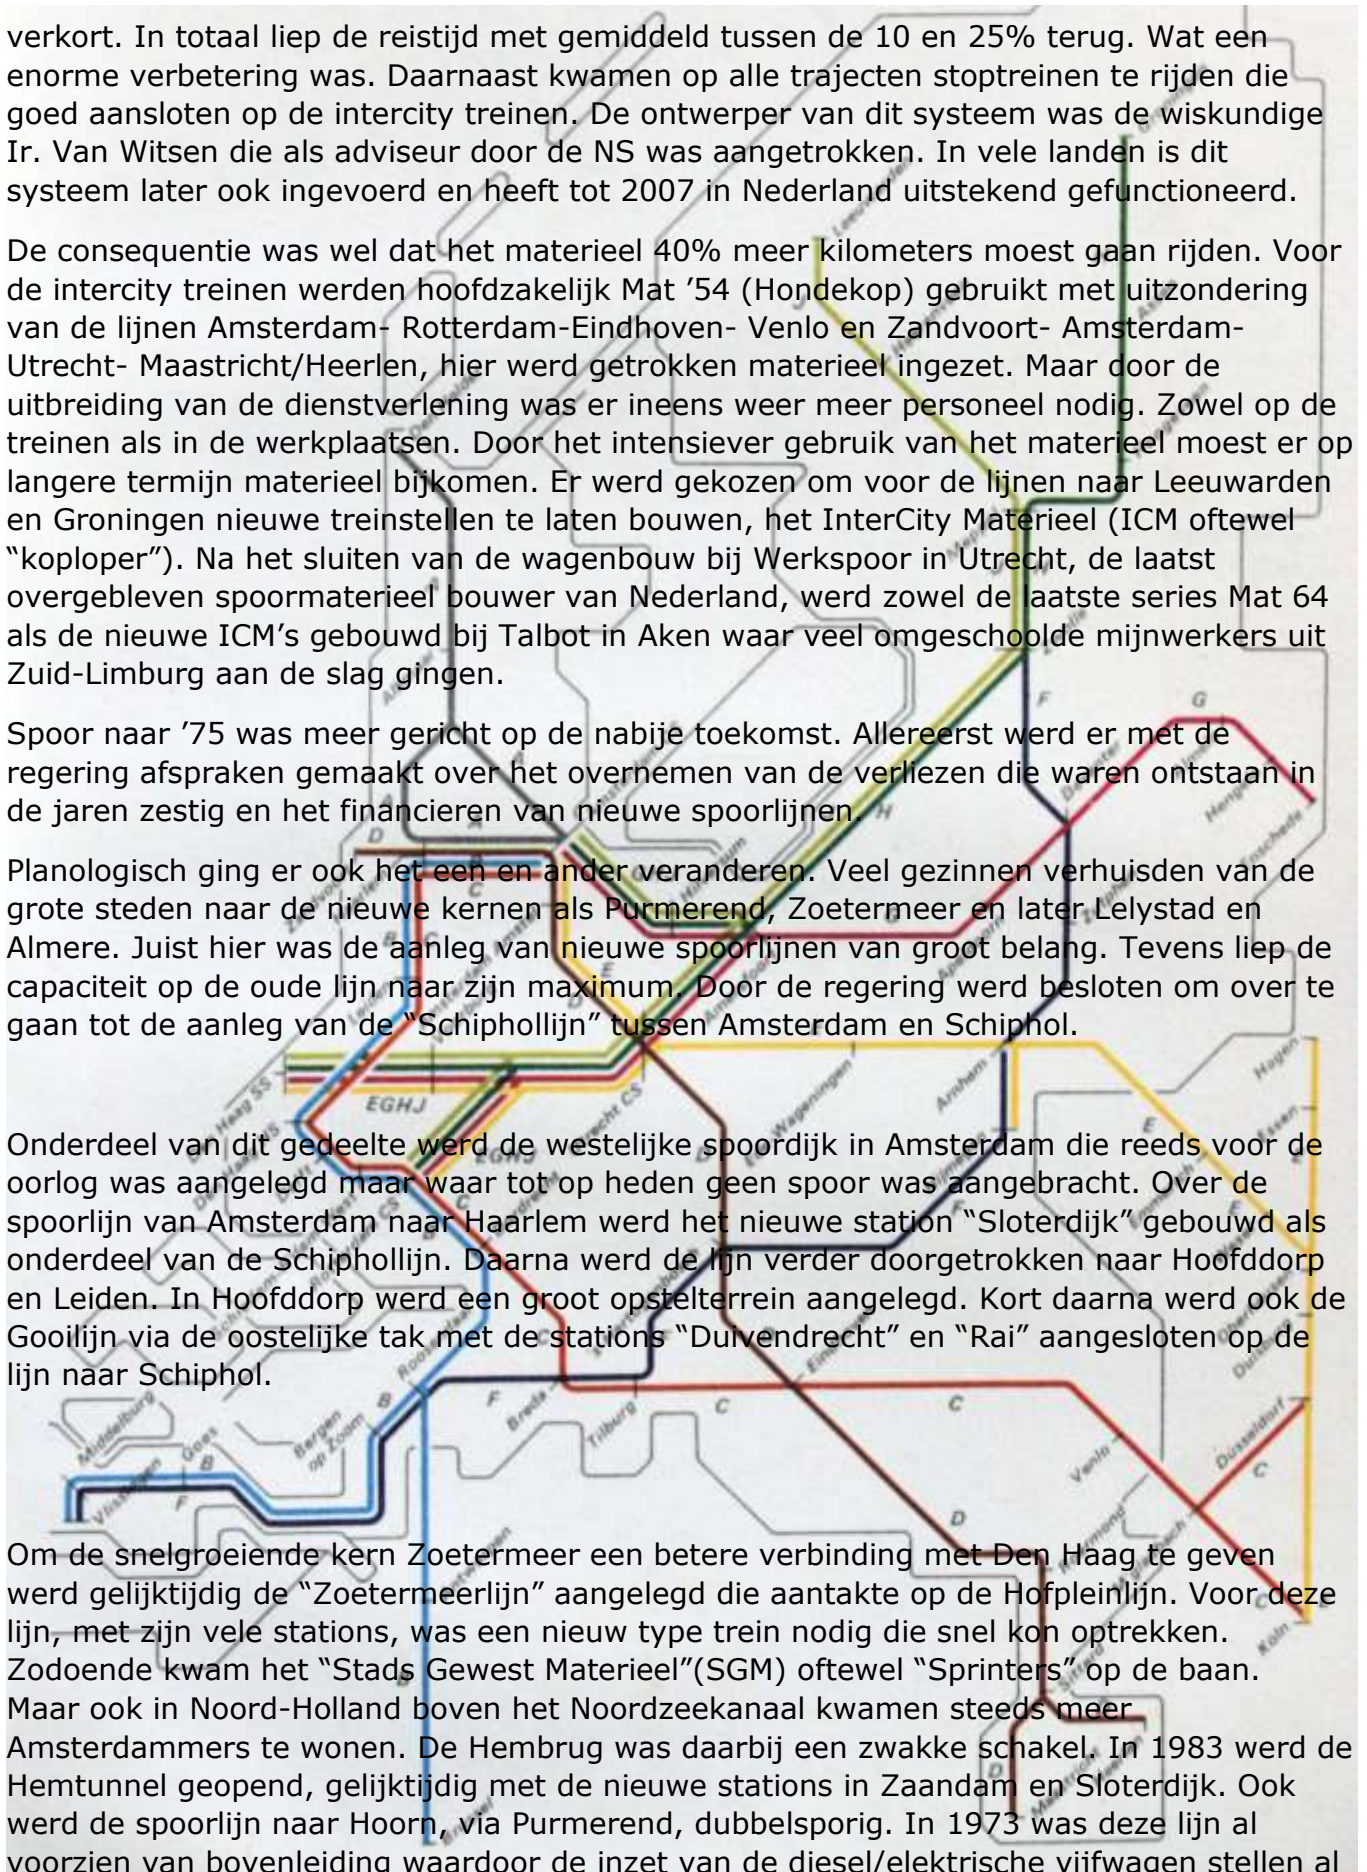 verkort. In totaal liep de reistijd met gemiddeld tussen de 10 en 25% terug. Wat een
enorme verbetering was. Daarnaast kwamen op alle trajecten stoptreinen te rijden die
goed aansloten op de intercity treinen. De ontwerper van dit systeem was de wiskundige
Ir. Van Witsen die als adviseur door de NS was aangetrokken. In vele landen is dit
systeem later ook ingevoerd en heeft tot 2007 in Nederland uitstekend gefunctioneerd.
De consequentie was wel dat het materieel 40% meer kilometers moest gaan rijden. Voor
de intercity treinen werden hoofdzakelijk Mat ’54 (Hondekop) gebruikt met uitzondering
van de lijnen Amsterdam- Rotterdam-Eindhoven- Venlo en Zandvoort- Amsterdam-
Utrecht- Maastricht/Heerlen, hier werd getrokken materieel ingezet. Maar door de
uitbreiding van de dienstverlening was er ineens weer meer personeel nodig. Zowel op de
treinen als in de werkplaatsen. Door het intensiever gebruik van het materieel moest er op
langere termijn materieel bijkomen. Er werd gekozen om voor de lijnen naar Leeuwarden
en Groningen nieuwe treinstellen te laten bouwen, het InterCity Materieel (ICM oftewel
“koploper”). Na het sluiten van de wagenbouw bij Werkspoor in Utrecht, de laatst
overgebleven spoormaterieel bouwer van Nederland, werd zowel de laatste series Mat 64
als de nieuwe ICM’s gebouwd bij Talbot in Aken waar veel omgeschoolde mijnwerkers uit
Zuid-Limburg aan de slag gingen.
Spoor naar ’75 was meer gericht op de nabije toekomst. Allereerst werd er met de
regering afspraken gemaakt over het overnemen van de verliezen die waren ontstaan in
de jaren zestig en het financieren van nieuwe spoorlijnen.
Planologisch ging er ook het een en ander veranderen. Veel gezinnen verhuisden van de
grote steden naar de nieuwe kernen als Purmerend, Zoetermeer en later Lelystad en
Almere. Juist hier was de aanleg van nieuwe spoorlijnen van groot belang. Tevens liep de
capaciteit op de oude lijn naar zijn maximum. Door de regering werd besloten om over te
gaan tot de aanleg van de “Schiphollijn” tussen Amsterdam en Schiphol.
Onderdeel van dit gedeelte werd de westelijke spoordijk in Amsterdam die reeds voor de
oorlog was aangelegd maar waar tot op heden geen spoor was aangebracht. Over de
spoorlijn van Amsterdam naar Haarlem werd het nieuwe station “Sloterdijk” gebouwd als
onderdeel van de Schiphollijn. Daarna werd de lijn verder doorgetrokken naar Hoofddorp
en Leiden. In Hoofddorp werd een groot opstelterrein aangelegd. Kort daarna werd ook de
Gooilijn via de oostelijke tak met de stations “Duivendrecht” en “Rai” aangesloten op de
lijn naar Schiphol.
Om de snelgroeiende kern Zoetermeer een betere verbinding met Den Haag te geven
werd gelijktijdig de “Zoetermeerlijn” aangelegd die aantakte op de Hofpleinlijn. Voor deze
lijn, met zijn vele stations, was een nieuw type trein nodig die snel kon optrekken.
Zodoende kwam het “Stads Gewest Materieel”(SGM) oftewel “Sprinters” op de baan.
Maar ook in Noord-Holland boven het Noordzeekanaal kwamen steeds meer
Amsterdammers te wonen. De Hembrug was daarbij een zwakke schakel. In 1983 werd de
Hemtunnel geopend, gelijktijdig met de nieuwe stations in Zaandam en Sloterdijk. Ook
werd de spoorlijn naar Hoorn, via Purmerend, dubbelsporig. In 1973 was deze lijn al
voorzien van bovenleiding waardoor de inzet van de diesel/elektrische vijfwagen stellen al
Den Haag SS
EGHJ
EGHJ
Utrecht CS
Ede-Wageningen
Arnhem
Nijmegen
Emmerich
Hagen
Essen
Oberhausen
Duisburg
Düsseldorf
Köln
Venlo
Roermond
Sittard
Maastricht
Eindhoven
Tilburg
Breda
Roosendaal
Bergen
op Zoom
Goes
Middelburg
Vlissingen
Antwerpen
Brussel
Dordrecht
Leiden
Amersfoort
Apeldoorn
Deventer
Zutphen
Almelo
Hengelo
Enschede
Zwolle
Meppel
Assen
Groningen
Leeuwarden
Hilversum